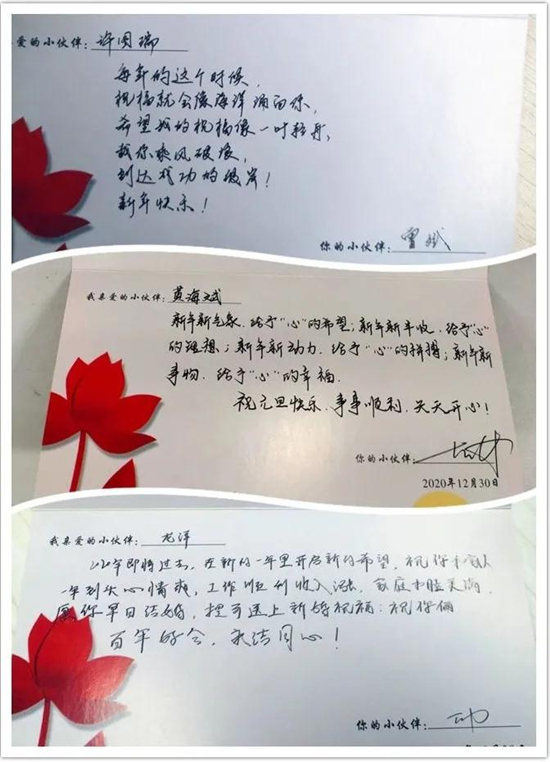 爱的小伙伴：许国瑞
每年的这个时候，
祝福就会像海洋涌向你，
希望我的祝福像一叶轻舟，
载你乘风破浪，
到达成功的彼岸！
新年快乐！
你的小伙伴：曾斌
我亲爱的小伙伴：黄海斌
新年新气象，给予“心”的希望；新年新丰收，给予“心”
的理想；新年新动力，给予“心”的拼搏；新年新
事物，给予“心”的幸福。
祝元旦快乐、事事顺利、天天开心！
你的小伙伴：
2020年12月30日
我亲爱的小伙伴：龙洋
2020年即将过去，在新的一年里开启新的希望，祝你和家人
一年到头心情爽，工作顺利收入涨，家庭和睦美满，
愿你早日结婚，提前送上新婚祝福：祝你俩
百年好合，永结同心！
你的小伙伴：